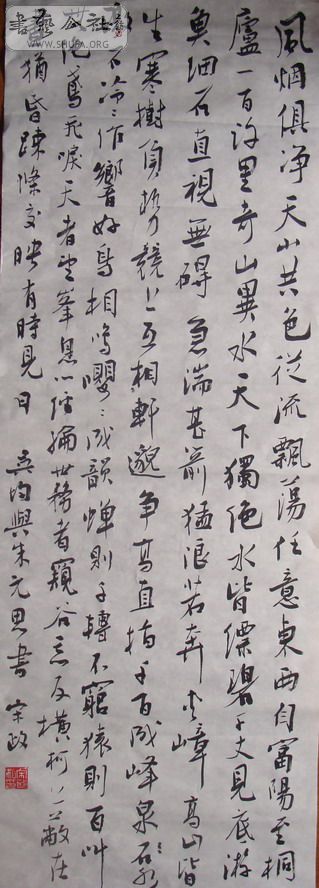 風烟俱净天山共色從流飄蕩任意東西自富陽至桐
廬一百許里奇山異水天下獨絶水皆縹碧千丈見底游
魚細石直視無礙急湍甚箭猛浪若奔夹嶂高山皆
生寒樹負勢競上互相軒邈争高直指千百成峰泉激
泠泠作響好鳥相鳴嚶嚶成韻蟬則千轉不窮猿則百叫
鳶飛戾天者望峯息心經綸世務者窺谷忘反横柯上蔽在
猶昏疎條交映有時見日 吴均與朱元思書 宗政
書藝公社
WWW.SHUFA.ORG